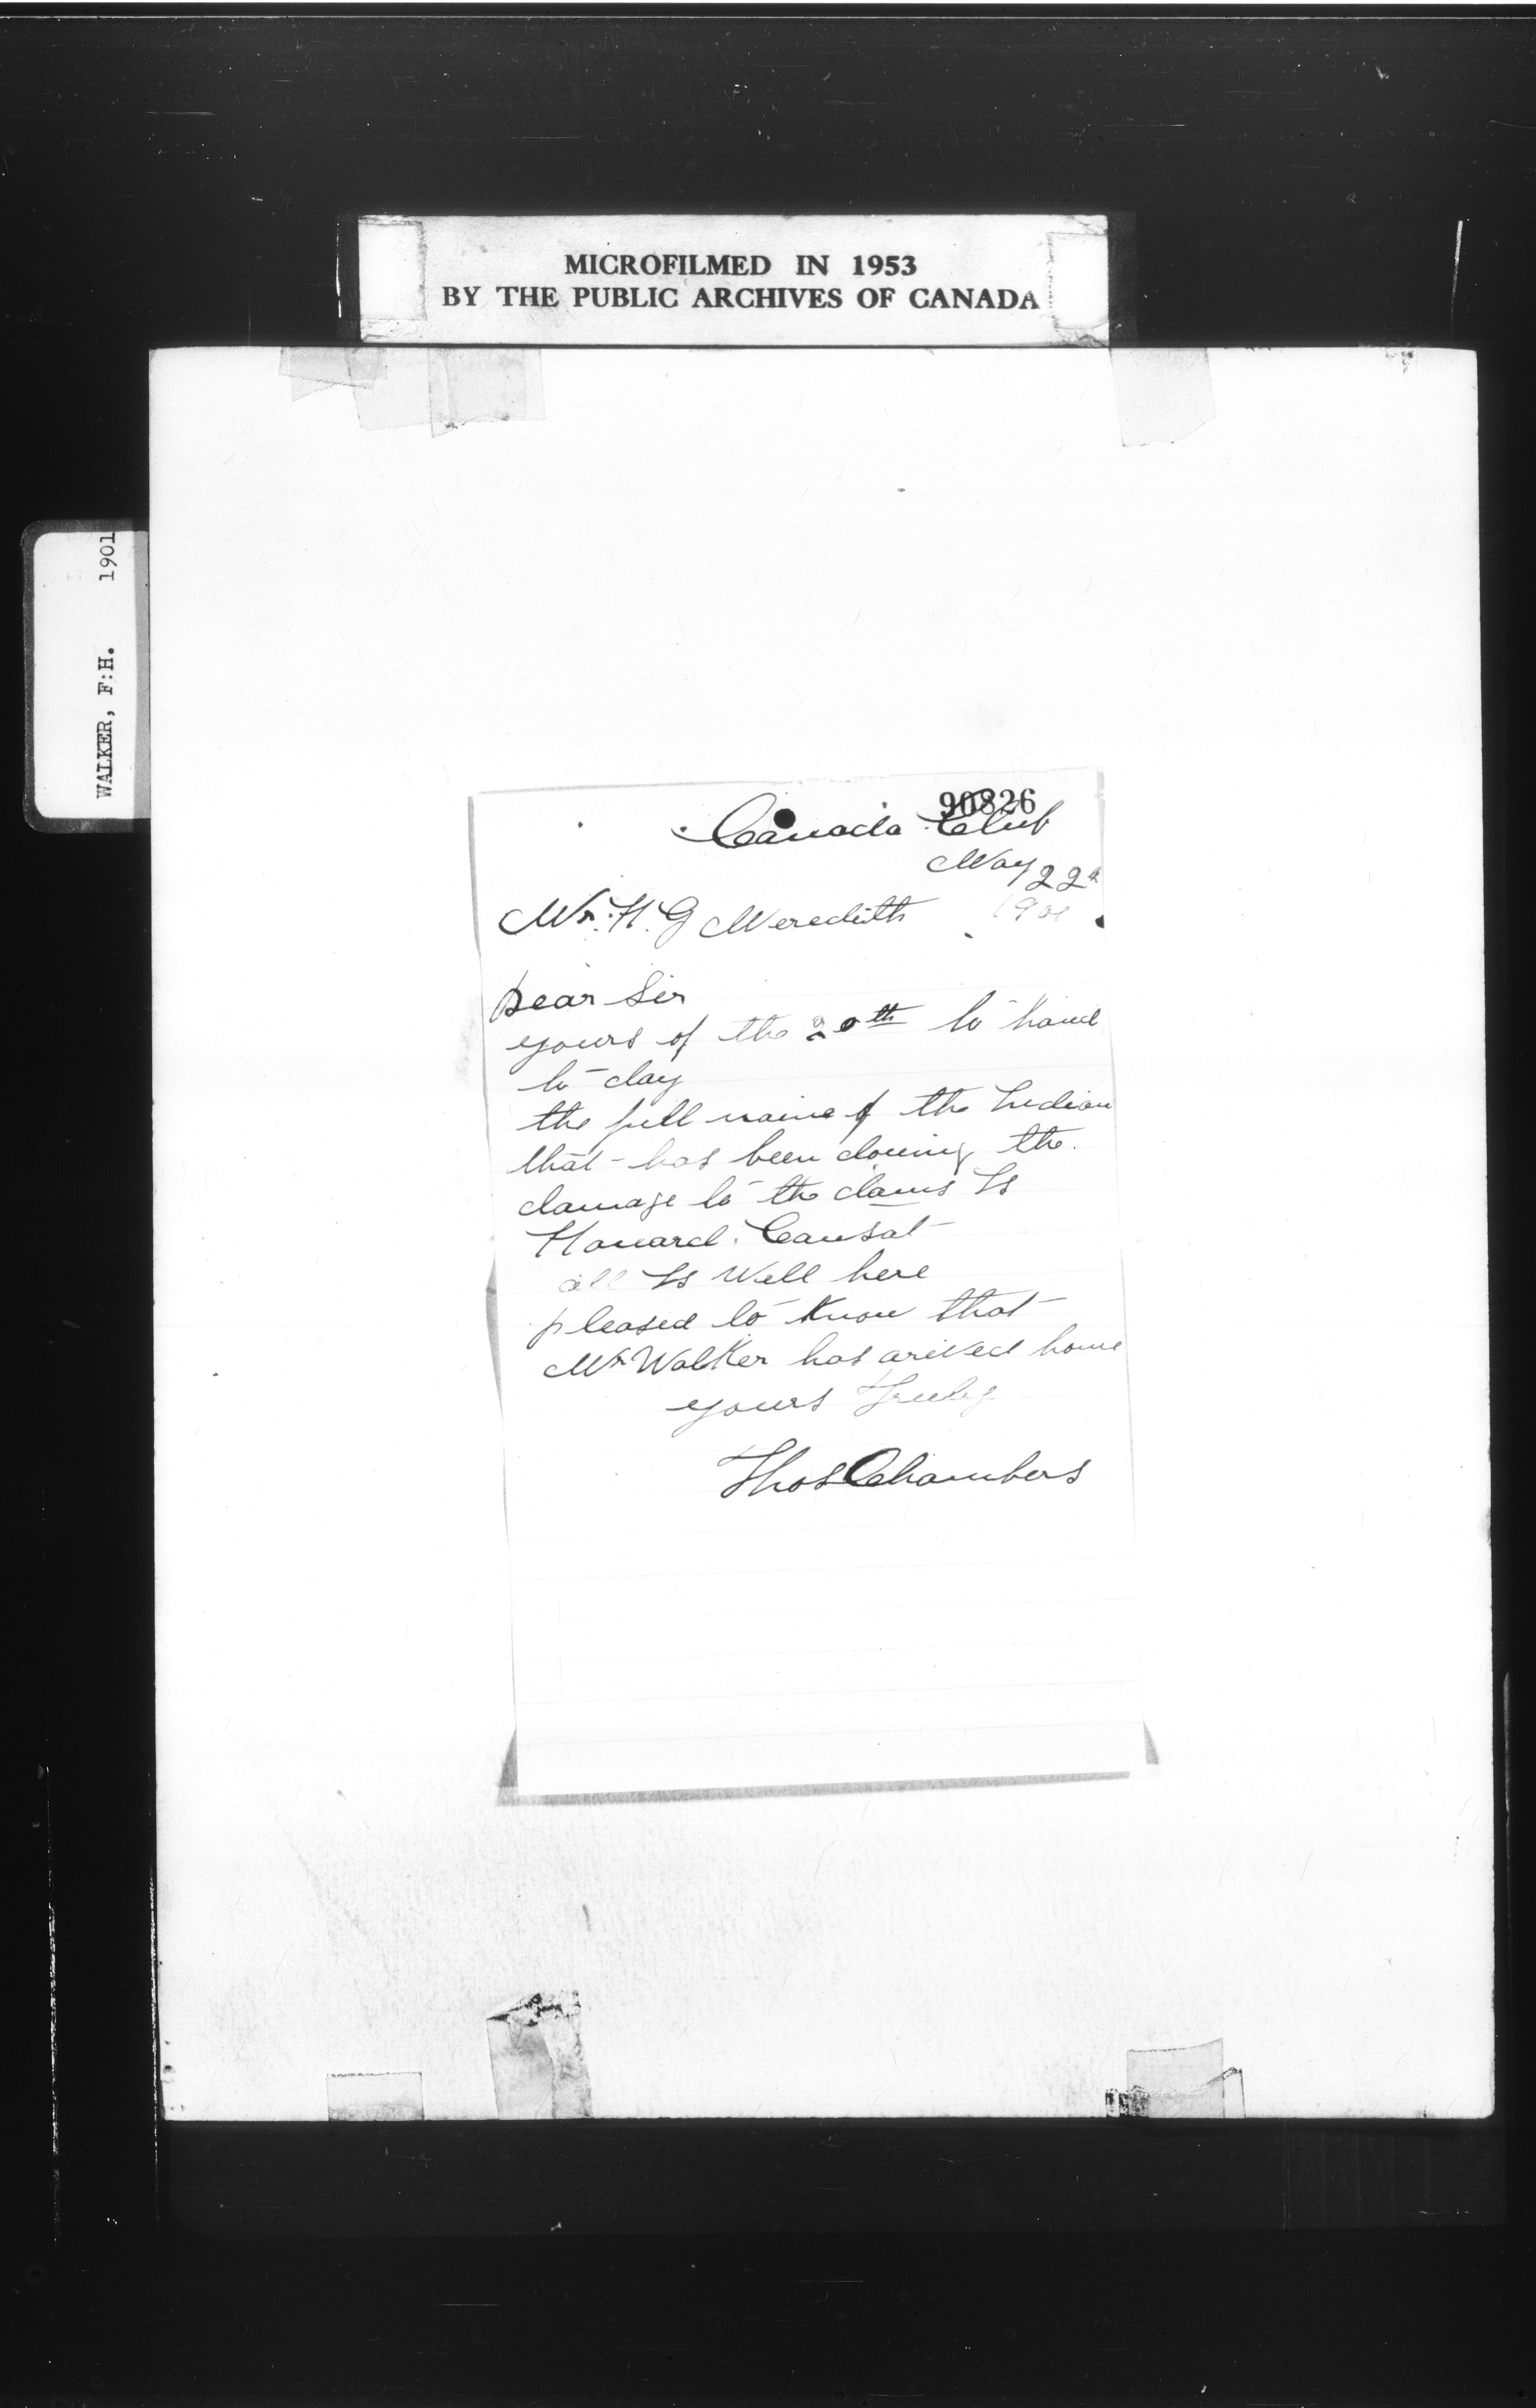 MICROFILMED IN 1953
BY THE PUBLIC ARCHIVES OF CANADA
WALKER, F:H. 1901
90826
Canada Club
May 22d
1901
Mr. H. G Meredith
Dear Sir
yours of the 20th to hand
to day
the full name of the Indian
that has been douing the
damage to the dams Is
Howard. Cansat
all Is Well here
pleased to Know that
Mr Walker has arived home
yours Truly
Thos Chambers